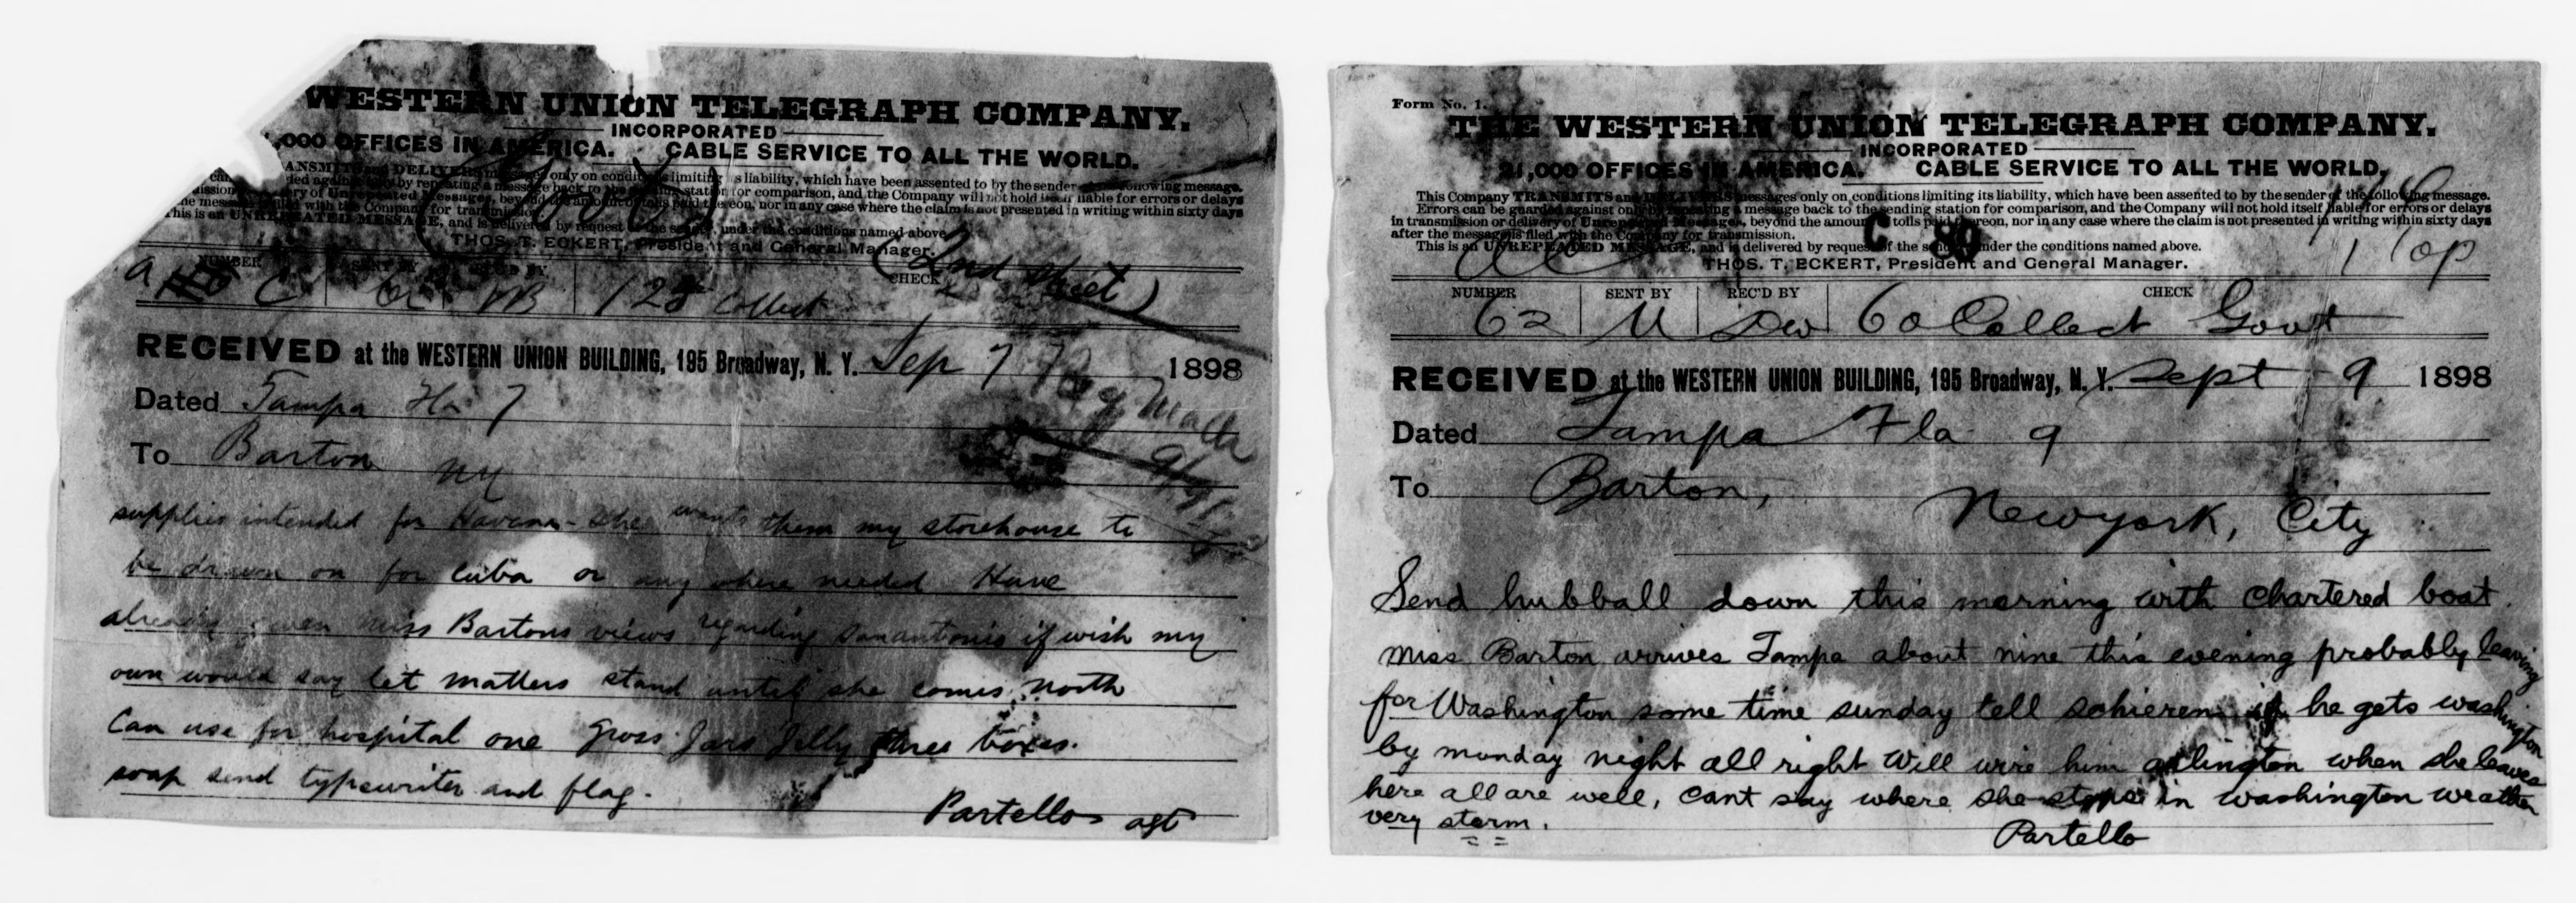 WESTERN UNION TELEGRAPH COMPANY.
INCORPORATED
,000 OFFICES IN AMERICA. CABLE SERVICE TO ALL THE WORLD.
ANSMITS and DELIVERS messages only on conditions limiting its liability, which have been assented to by the sender following message.
ded against only by repeating a message back to the station for comparison, and the Company will not hold itself liable for errors or delays
ission ery of Unrepeated Messages, beyond the amount of tolls paid thereon, nor in any case where the claim is not presented in writing within sixty days
he message filed with the Company for transmission.
This is an UNREPEATED MESSAGE, and is delivered by request of the sender, under the conditions named above.
THOS. T. ECKERT, President and General Manager.
(2nd sheet)
NUMBER SENT BY REC'D BY CHECK
C 128 Collect
RECEIVED at the WESTERN UNION BUILDING, 195 Broadway, N. Y. Sep 7 1898
Dated Tampa Fla 7
To Barton
NY
supplies intended for Havana - she wants them my storehouse to
be drawn on for Cuba or any where needed Have
already given miss Bartons views regarding Sanantonio if wish my
own would say let matters stand until she comes north
Can use for hospital one gross Jars Jelly three boxes.
soap send typewriter and flag.
Partello agt
Form No. 1.
THE WESTERN UNION TELEGRAPH COMPANY.
INCORPORATED
21,000 OFFICES IN AMERICA. CABLE SERVICE TO ALL THE WORLD.
This Company TRANSMITS and DELIVERS messages only on conditions limiting its liability, which have been assented to by the sender of the following message.
Errors can be guarded against only by repeating a message back to the sending station for comparison, and the Company will not hold itself liable for errors or delays
in transmission or delivery of Unrepeated Messages, beyond the amount of tolls paid thereon, nor in any case where the claim is not presented in writing within sixty days
after the message is filed with the Company for transmission.
This is an UNREPEATED MESSAGE, and is delivered by request of the sender, under the conditions named above.
THOS. T. ECKERT, President and General Manager.
C 89
NUMBER SENT BY REC'D BY CHECK
62 60 Collect Govt
RECEIVED at the WESTERN UNION BUILDING, 195 Broadway, N. Y. Sept 9 1898
Dated Tampa Fla 9
To Barton,
Newyork, City
Send hubball down this morning with chartered boat.
miss Barton arrives Tampa about nine this evening probably leaving
for Washington some time sunday tell schieren if he gets washington
by monday night all right Will wire him arlington when she leaves
here all are well, cant say where she stops in washington weather
very storm.
Partello